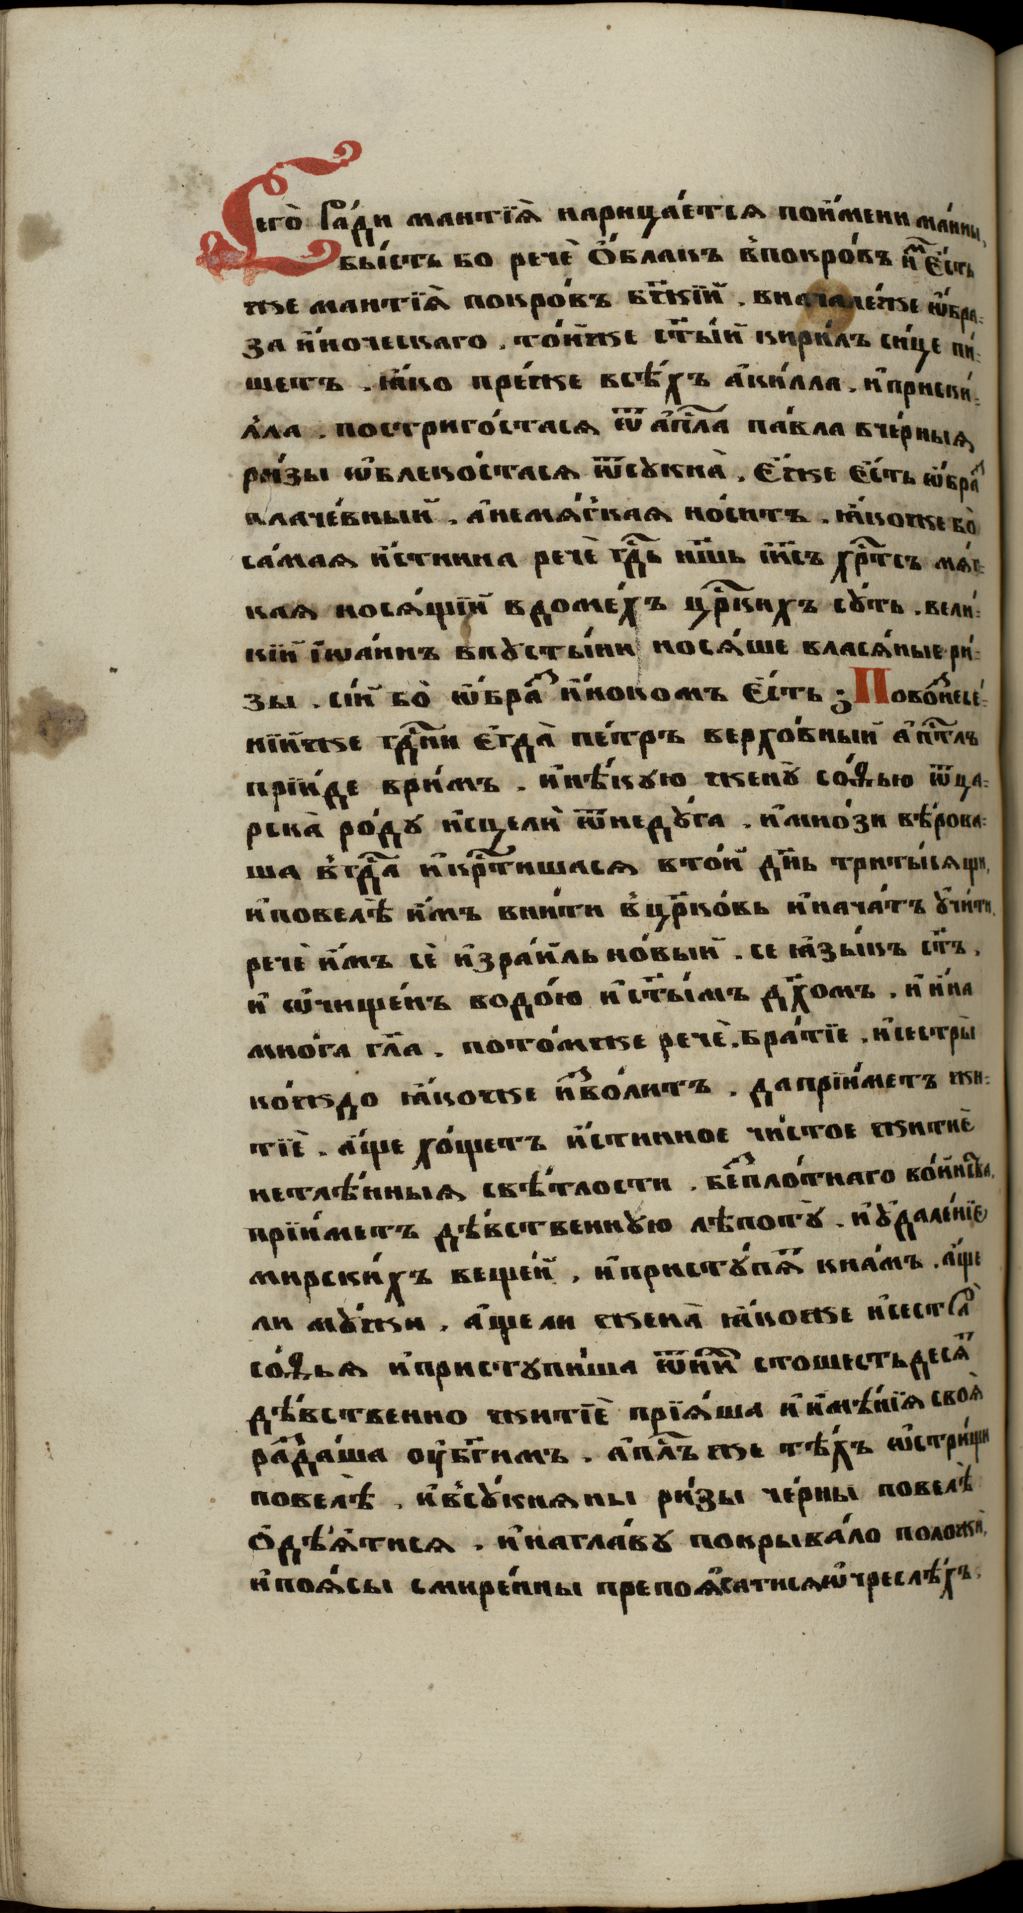 Сего̀ ра́ди мантїѧ̀ нарица́етсѧ пои҆́мени ма́нны,
бы́сть бо речѐ ѻ҆́блакъ в҆покро́въ и҆̀мъ є҆́сть
же мантїѧ̀ покро́въ бж҃їй . внача́ле́же ѡ҆́бра:
за и҆́ноческаго . то́йже ст҃ы́й кири́лъ си́це пи́:
шетъ . ꙗ҆́ко пре́же всѣ́хъ а҆ки́лла . и҆приски́:
лла . постриго́стасѧ ѿ а҆пⷭ҇ла па́вла вче́рныѧ
ри́зы ѡ҆блеко́стасѧ ѿсꙋкна̀ . є҆́же є҆́сть ѡ҆́браⷥ
плаче́вный . а҆немѧ́гкаѧ но́ситъ . ꙗ҆́коже бо̀
са́маѧ и҆́стинна речѐ гдⷭ҇ь на́шь і҆и҃съ хрⷭ҇тсъ мѧ́г:
каѧ носѧ́щїй вдоме́хъ црⷭ҇кихъ сꙋ́ть . вели́:
кїй і҆ѡа́ннъ впꙋсты́ни носѧ́ше власѧ́ные ри́:
зы . сі́й бо̀ ѡ҆́браⷥ и҆́нокомъ є҆́сть ; Повоⷥнесе́:
нїи́же гдⷭ҇ни є҆гда̀ пе́тръ верхо́вный а҆пⷭ҇тлъ
прїи́деври́мъ . и҆нѣ́кꙋю женꙋ̀ со́ѳью ѿца:
рска̀ ро́дꙋ и҆сцелѝ ѿнедꙋ́га . и҆мно́зи вѣ́рова:
ша в҆гдⷭ҇а и҆крⷭ҇тишасѧ вто́й дн҃ь тритысѧщи,
и҆повелѣ̀ и҆́мъ вни́ти в҆цр҃ко́вь и҆нача́тъ ᲂу҆чи́ти,
речѐ и҆́мъ сѐ и҆зра́иль но́вый . се ꙗ҆зы́къ ст҃ъ .
и҆ ѡ҆чище́нъ водо́ю и҆ст҃ы́мъ дх҃омъ . и҆ и҆́на
мно́га гл҃а . пото́мже речѐ . бра́тїе . и҆сестры̀
ко́ждо ꙗ҆́коже и҆ⷥво́литъ . да прїи́метъ жи:
тїѐ . а҆́ще хо́щетъ и҆́стинное чи́стое житиѐ
нетлѣ́нныѧ свѣ́тлости . беⷥпло́тнаго во́инства,
прїи́метъ дѣ́вственнꙋю лѣпотꙋ̀ . и҆ᲂу҆дале́нїе
мирски́хъ веще́й . и҆пристꙋ́пѧⷮ кна́мъ . а҆́ще
ли мꙋ́жи . а҆́ще ли жена̀ ꙗ҆́коже и҆сестра̀
со́ѳьѧ и҆пристꙋпи́ша ѿни́хⷯ стошестьдесѧⷮ
дѣ́вственно житїѐ прїѧ́ша и҆ и҆мѣ́нїѧ своѧ̀
раⷥда́ша ᲂу҆бо́гимъ . а҆пⷭ҇лъ же тѣ́хъ ѡ҆стри́щи
повелѣ̀ . и҆в҆сꙋ́кнѧны ри́зы че́рны повелѣ̀
ѻ҆дѣ́ѧтисѧ . и҆наглавꙋ̀ покрыва́ло положѝ,
и҆поѧ́сы смире́нны препоѧ́сатисѧ ѡ҆чреслѣ́хъ .